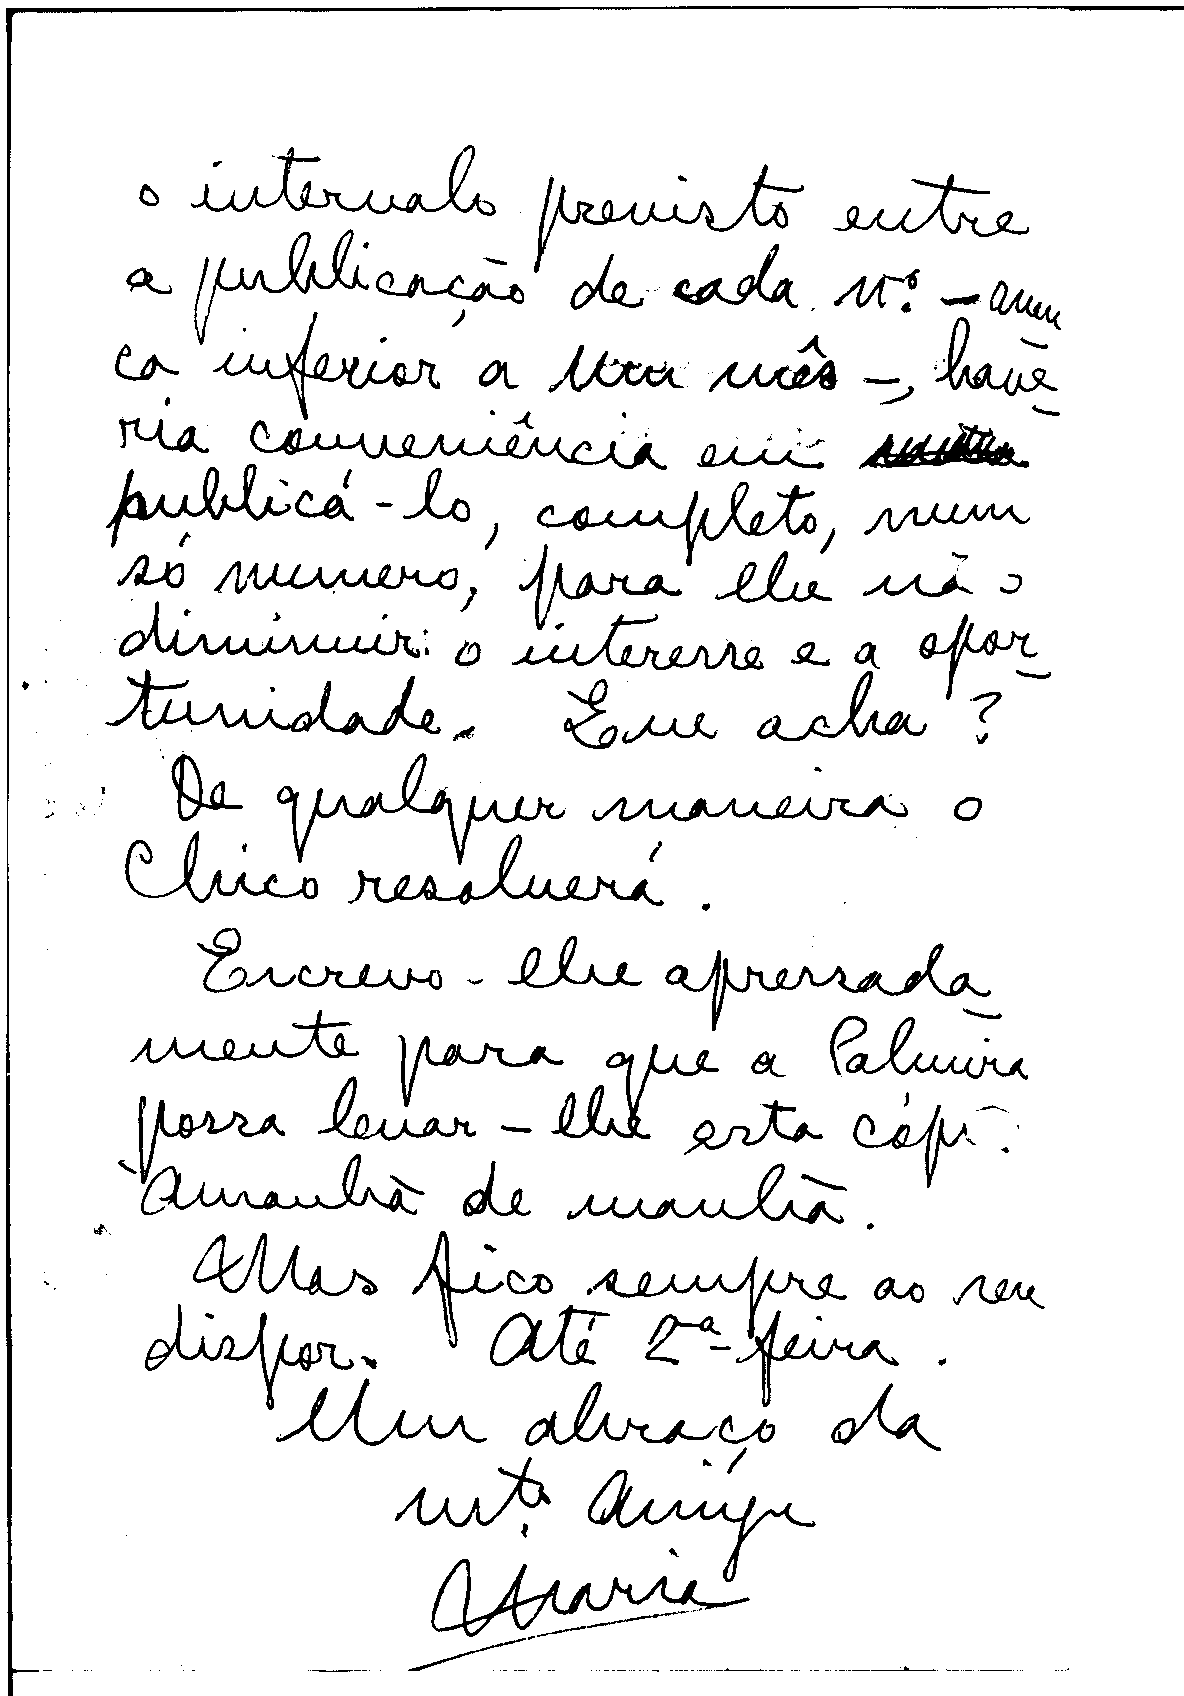 o intervalo previsto entre
a publicação de cada nº. - nun
ca inferior a um mês -, have-
ria conveniência em
publicá-lo, completo, num
só numero, para lhe não
diminuir o interesse e a opor-
tunidade. Que acha?
De qualquer maneira o
Chico resolverá.
Escrevo-lhe apressada-
mente para que a Palmira
possa levar-lhe esta cópi.
Amanhã de manhã.
Mas fico sempre ao seu
dispor. Até 2ª-feira.
Um abraço da
mtº. Amiga
Maria